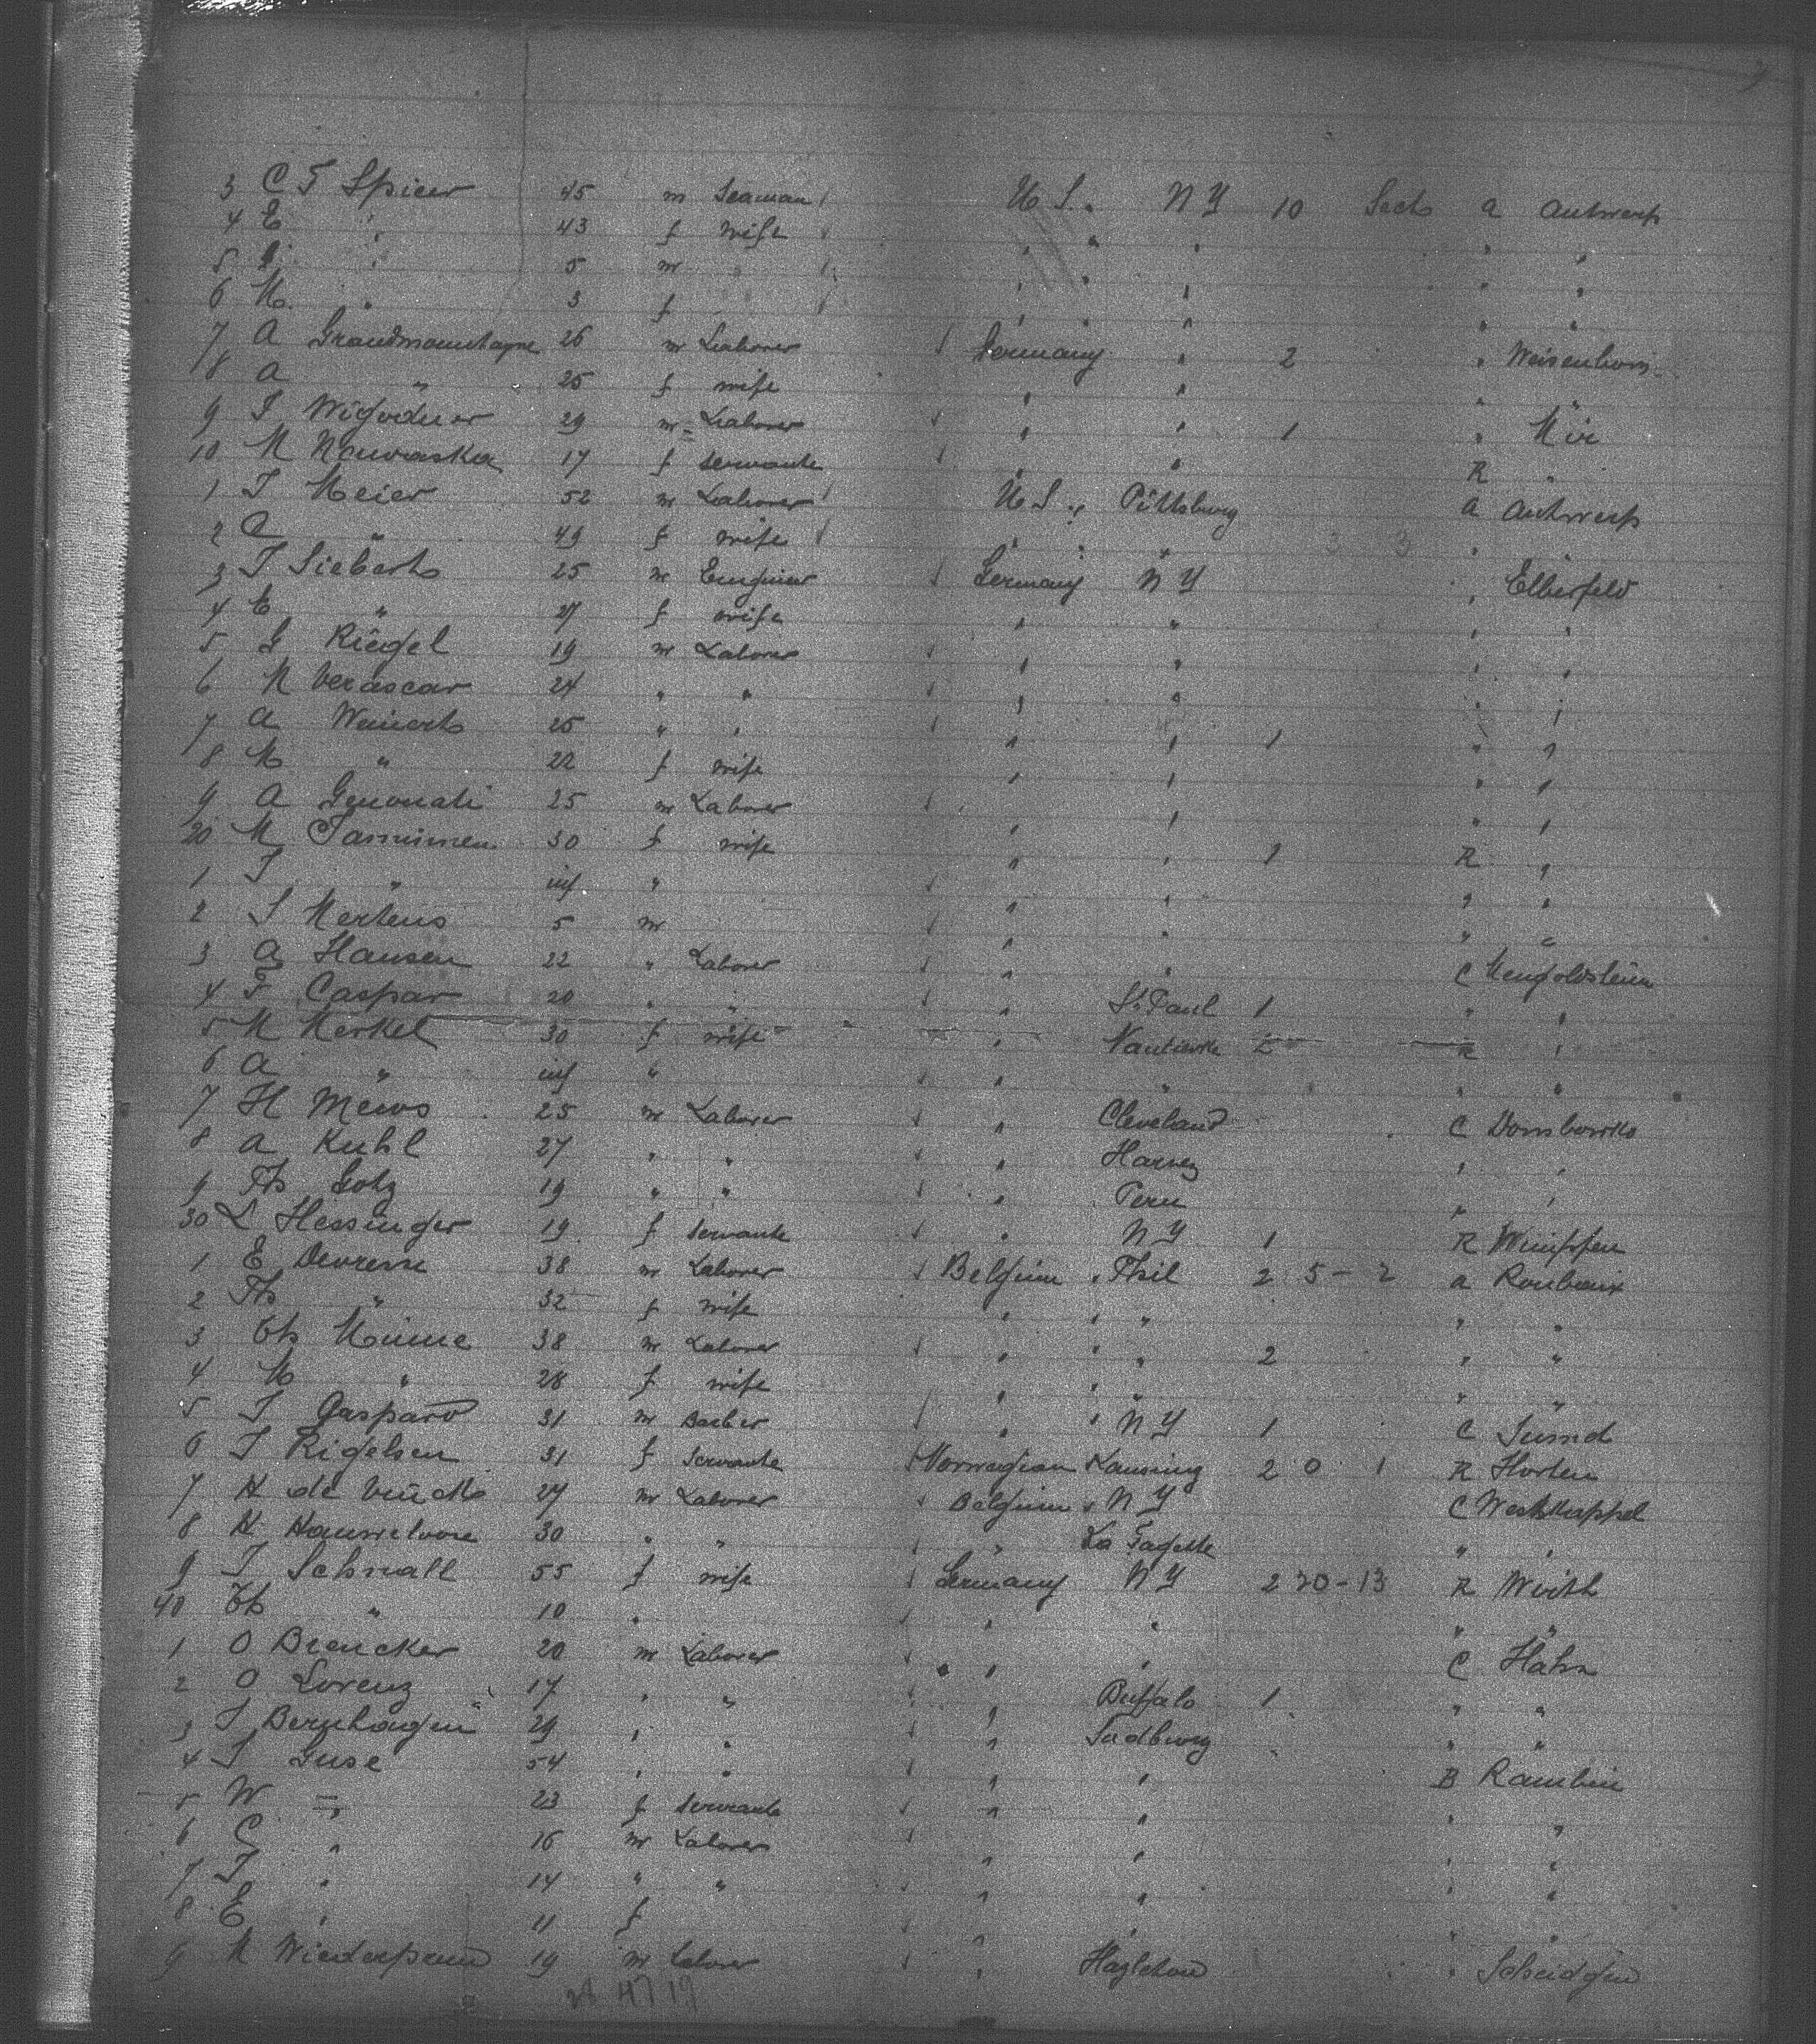 3 C F Spicer 45 m Seaman U S. N Y 10 Sects a Antwerp
4 E " 43 f wife " " " " "
5 " 5 m " " " " "
6 M. " 3 f " " " " "
7 A Grandmountagne 26 m Laborer Germany " 2 " Weisenborn
8 A " 25 f wife " " " "
9 J Wigodner 29 m Laborer " " 1 " Mir
10 M Nowaska 17 f servante " " R "
1 J Meier 52 m Laborer U S. Pittsburg a Antwerp
2 C " 49 f wife " " " "
3 J Sieberts 25 m Enginier Germany N Y " Elberfeld
4 E " 27 f wife " " " "
5 G Riegel 19 m Laborer " " " "
6 M Verascar 24 " " " " " "
7 A Weinerts 25 " " " " 1 " "
8 M " 22 f wife " " " "
9 A Genonati 25 m Laborer " " " "
20 M Tamminen 30 f wife " " 1 R "
1 J " inf " " " " "
2 J Mertens 5 m " " " "
3 A Hansen 22 " Laborer " " C
4 F Caspar 20 " " " St Paul 1 " "
5 M Merkel 30 f wife " 2 R "
6 A " inf " " " " "
7 H Mews 25 m Laborer " Cleveland C
8 A Kuhl 27 " " " Harvey " "
9 Th Gotz 19 " " " Peru " "
30 L Hessinger 19 f servante " N Y 1 R Wimpfen
1 E Devresse 38 m Laborer Belgium " Phil 2 5 - 2 a Roubaix
2 Th " 32 f wife " " " " "
3 Ch Minne 38 m Laborer " " " 2 " "
4 M " 28 f wife " " " " "
5 J Gaspard 31 m Barber " " N Y 1 C
6 J Rigelsen 31 f servante Norwegian Lansing 2 0 1 R Horten
7 H de 27 m Laborer Belgium " N Y C Westkappel
8 H 30 " " " La Fayette " "
9 J Schmall 55 f wife Germany N Y 2 20 - 13 R Wirth
40 Ch " 10 " " " " "
1 O Breucker 20 m Laborer " " C Hahn
2 O Lorenz 17 " " " Buffalo 1 " "
3 J Bernhagen 29 " " " Sudbury " "
4 J Guse 54 " " " " B Rambin
5 W " 23 f servante " " " "
6 C " 16 m Laborer " " " "
7 J " 14 " " " " " "
8 E " 11 f " " " "
9 M 19 m Laborer " Hazleton " Scheidgen
28 47 19